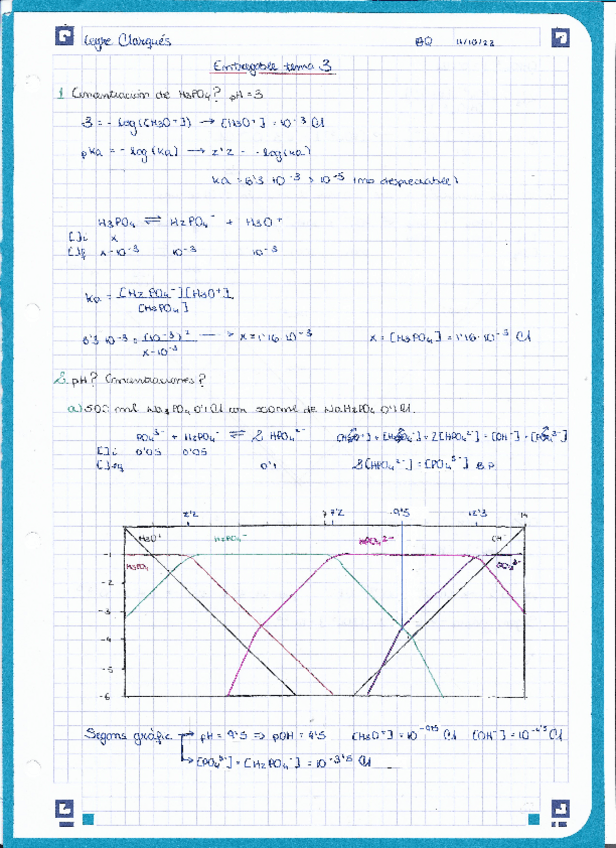 Clarqués BQ 11/10/23
Entregable tema 3
1. Concentración de H3PO4? pH = 3
3 = - log([H3O+]) → [H3O+] = 10-3 M
pKa = - log(Ka) → 2'2 = - log(Ka)
Ka = 6'3·10-3 > 10-5 (no despreciable)
H3PO4 ⇌ H2PO4- + H3O+
[ ]i x
[ ]f x-10-3 10-3 10-3
Ka = [H2PO4-][H3O+]
[H3PO4]
6'3·10-3 = (10-3)2 → x = 1'16·10-3 x = [H3PO4] = 1'16·10-3 M
x-10-3
2. pH? Concentraciones?
a) 500 ml Na3PO4 0'1M con 500ml de NaH2PO4 0'1M.
PO43- + H2PO4- ⇌ 2 HPO42-
[ ]i 0'05 0'05
[ ]eq 0'1
2'2 7 7'2 9'5 12'3 14
H3O+ H2PO4- HPO42- OH-
-1
H3PO4 PO43-
-2
-3
-4
-5
-6
Segons gràfic → pH = 9'5 ⇒ pOH = 4'5 [H3O+] = 10-9'5 M [OH-] = 10-4'5 M
→ [PO43-] = [H2PO4-] = 10-3'5 M